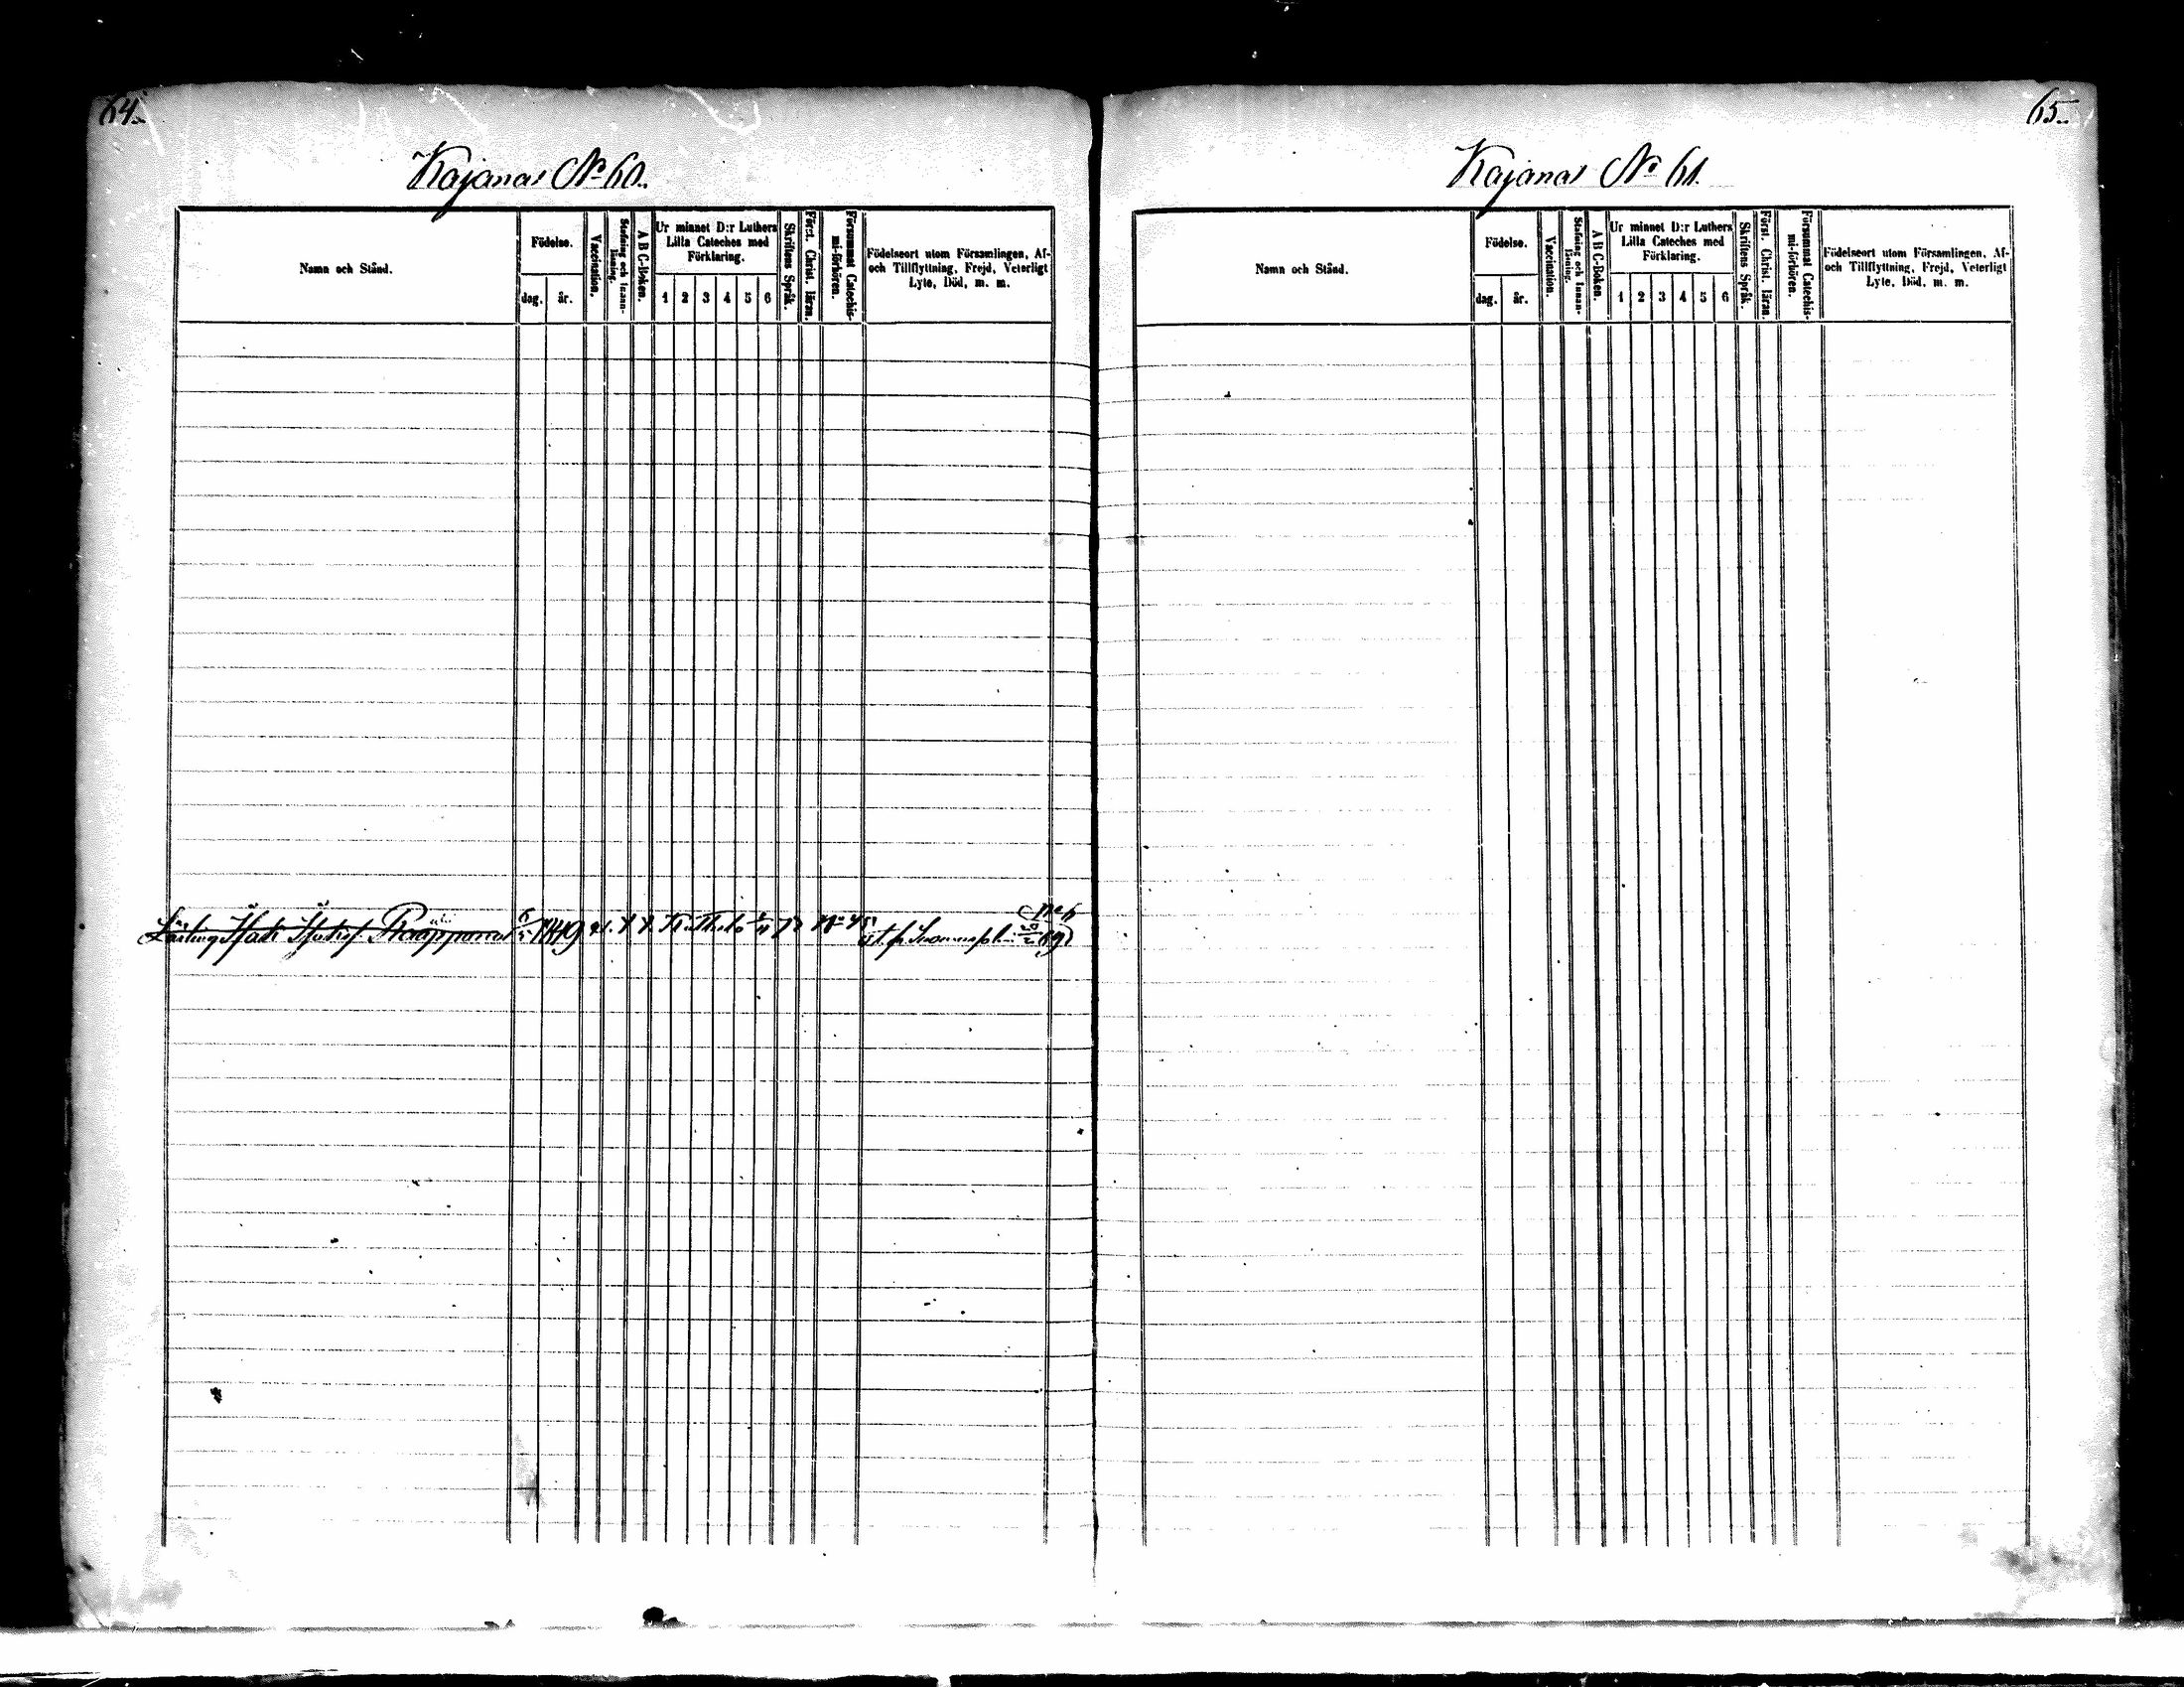 64.
Kajana N:o 60.
Namn och Stånd.
Födelse.
dag.
år.
Vaccination.
Stafning och Innanläsning.
A B C-Boken.
Ur minnet D:r Luthers
Lilla Cateches med
Förklaring.
1 2 3 4 5 6
Skriftens Språk.
Först. Christ. läran.
Försummat Catechis-
mi-förhören.
Födelseort utom Församlingen, Af-
och Tillflyttning, Frejd, Veterligt
Lyte, Död, m. m.
Lärling Isak Isaksf Raapponen
65.
Kajana N:o 61.
Namn och Stånd.
Födelse.
dag.
år.
Vaccination.
Stafning och Innanläsning.
A B C-Boken.
Ur minnet D:r Luthers
Lilla Cateches med
Förklaring.
1 2 3 4 5 6
Skriftens Språk.
Först. Christ. läran.
Försummat Catechis-
mi-förhören.
Födelseort utom Församlingen, Af-
och Tillflyttning, Frejd, Veterligt
Lyte, Död, m. m.